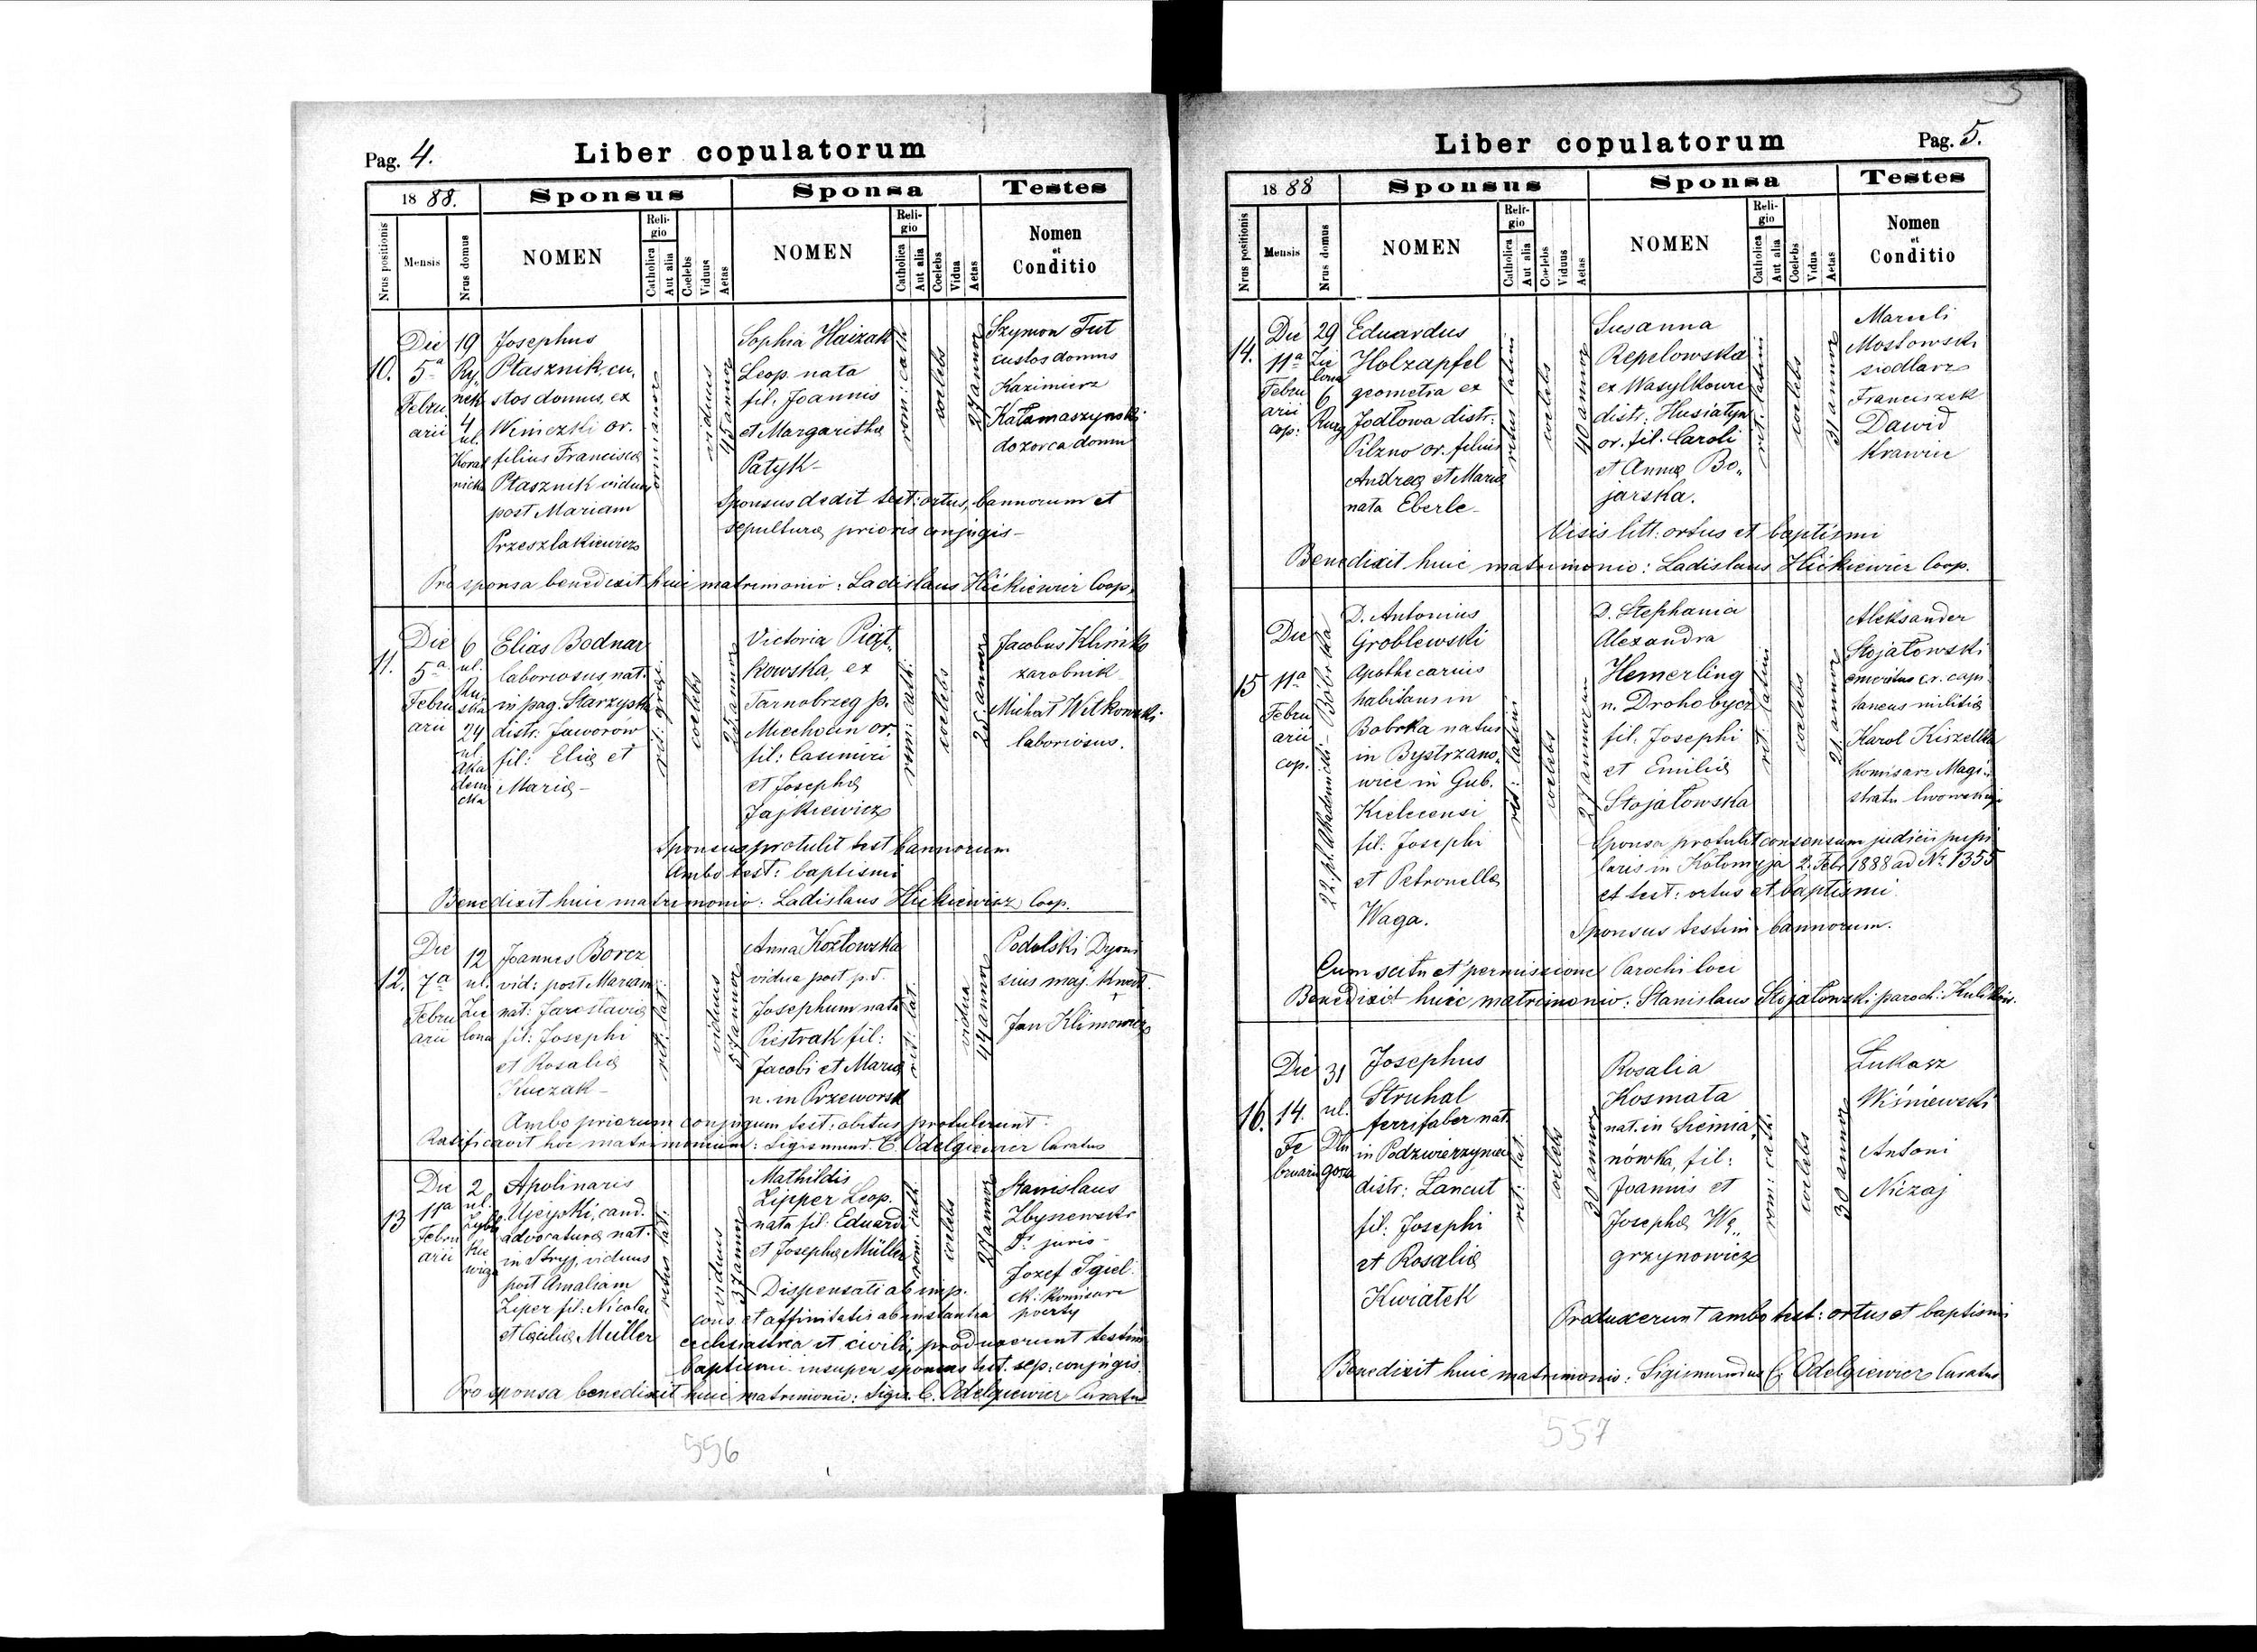 Pag. 4.
Liber copulatorum
18 88.
Sponsus
Sponsa
Testes
Nrus positionis
Mensis
Nrus domus
NOMEN
Reli-
gio
Catholica
Aut alia
Coelebs
Viduus
Aetas
NOMEN
Reli-
gio
Catholica
Aut alia
Coelebs
Vidua
Aetas
Nomen
et
Conditio
10.
Die
5a
Febru
arii
19
Ry-
nek
4
ul.
Josephus
Ptasznik, cu,,
stos domus, ex
Winiczki or.
filius Francisca
Ptasznik viduus
post Mariam
Przeszlakiewicz
viduus
45 annor
Sophia Haizak
Leop. nata
fil. Joannis
et Margaritha
Patyk-
rom: cath.
coelebs
27 annor
Szymon Tut
custos domus
Kazimierz
Katamaszynski
dozorca domu
Sponsus dedit test: ortus, bannorum et
sepultura prioris conjugis-
Pro sponsa benedixit huic matrimonio: Ladislaus Hićkiewicz Coop.
11.
Die
5a
Febru
arii
6
ul.
Ru,
ska
24
ul.
Aka
dem
cka
Elias Bodnar
laboriosus nat.
in pag. Starzyska
distr. Jaworów
fil: Elia et
Maria-
coelebs
25 annor
Victoria Piąt,,
kowska, ex
Tarnobrzeg p.
Miechocin or.
fil: Casimiri
et Josepha
Jajkiewicz
rom: cath:
coelebs
25 annor
Jacobus Klimko
zarobnik
Michał Witkowski
laboriosus.
Sponsus protulit test bannorum
Ambo test: baptismi
Benedixit huic matrimonio: Ladislaus Hickiewicz Coop.
12.
Die
7a
Febru
arii
12
ul.
Zie
lona
Joannes Borcz
vid: post Mariam
nat: Jaroslavia
fil: Josephi
et Rosalia
Kuczak-
rit: lat:
viduus
57 annor
Anna Kozłowska
vidua post p.d.
Josephum nata
Piestrak fil:
Jacobi et Maria
n. in Przeworsk
rit: lat.
vidua
44 annor
Podolski Dyoni
sius maj.
Jan Klimowicz
Ambo priorum conjugum test: obitus protulerunt.
Ratificavit hoc matrimonium: Sigismund. C. Odelgiewicz Curatus
13
Die
11a
Febru
arii
2
ul.
Zybli
kie
wicza
Apolinaris
Ujejski, cand.
advocatura nat.
in Stryj, viduus
post Amaliam
Ziper fil: Nicolai
et Cacilia Müller
ritus lat.
viduus
37 annor
Mathildis
Zipper Leop.
nata fil: Eduardi
et Josepha Müller
rom: cath
coelebs
27 annor
Stanislaus
Zbyszewski
Dr juris-
Jozef Igiel
ck. komisarz
poczty
Dispensati ab imp.
cons. et affinitatis ab instantia
ecclesiastica et civili, produxerunt testim
baptismi insuper sponsus test. sep. conjugis.
Pro sponsa benedixit huic matrimonio: Sigis. C. Odelgiewicz Curatus
556
Liber copulatorum
Pag. 5.
18 88
Sponsus
Sponsa
Testes
Nrus positionis
Mensis
Nrus domus
NOMEN
Reli-
gio
Catholica
Aut alia
Coelebs
Viduus
Aetas
NOMEN
Reli-
gio
Catholica
Aut alia
Coelebs
Vidua
Aetas
Nomen
et
Conditio
14.
Die
11a
Febru
arii
cop:
29
Zie
lona
6
Rurg
Eduardus
Holzapfel
geometra ex
Jodłowa distr:
Pilzno or. filius
Andrea et Maria
nata Eberle-
ritus latini
coelebs
40 annor
Susanna
Repelowska
ex Wasylkowce
distr: Husiatyn
or. fil. Caroli
et Anna Bo,,
jarska.
rit: latini
coelebs
31 annor
Marceli
Mostowski
siodlarz
Franciszek
Dawid
Krawiec
Visis litt: ortus et baptismi
Benedixit huic matrimonio: Ladislaus Hićkiewicz Coop.
15
Die
11a
Febru
arii
cop.
22. pl. Akademicki - Bóbrka
D. Antonius
Groblewski
Apothecarius
habitans in
Bobrka natus
in Bystrzano,
wice in Gub.
Kielcensi
fil. Josephi
et Petronella
Waga.
rit: latini
coelebs
27 annorum
D. Stephania
Alexandra
Hemerling
n. Drohobycz
fil. Josephi
et Emilia
Stojałowska
rit: latini
coelebs
21 annor
Aleksander
Stojałowski
emeritus c.r. capi
taneus militia
Karol Kiszelka
Komisarz Magi,,
stratu lwowskiego
Sponsa protulit consensum judicii pupi
laris in Kołomyja 2. Febr 1888 ad No. 1355
et test: ortus et baptismi
Sponsus testim bannorum.
Cum scitu et permissione Parochi loci
Benedixit huic matrimonio: Stanislaus Stojałowski paroch: Kulikov.
16.
Die
14.
Fe
bruarii
31
ul.
Dłu
gosza
Josephus
Struhal
ferrifaber nat
in Podzwierzyniec
distr: Łancut
fil. Josephi
et Rosalia
Kwiatek
rit: lat.
coelebs
30 annor
Rosalia
Kosmata
nat. in Sienia,
nówka, fil:
Joannis et
Josepha Wę,,
grzynowicz
rom: cath:
coelebs
30 annor
Łukasz
Wiśniewski
Antoni
Niczaj
Produxerunt ambo test: ortus et baptismi
Benedixit huic matrimonio: Sigismundus C. Odelgiewicz Curatus
557